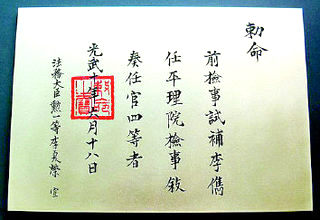 勅命
前檢事試補李儁
任平理院檢事敍
奏任官四等者
光武十年六月十八日
法務大臣勳一等李夏榮 宣